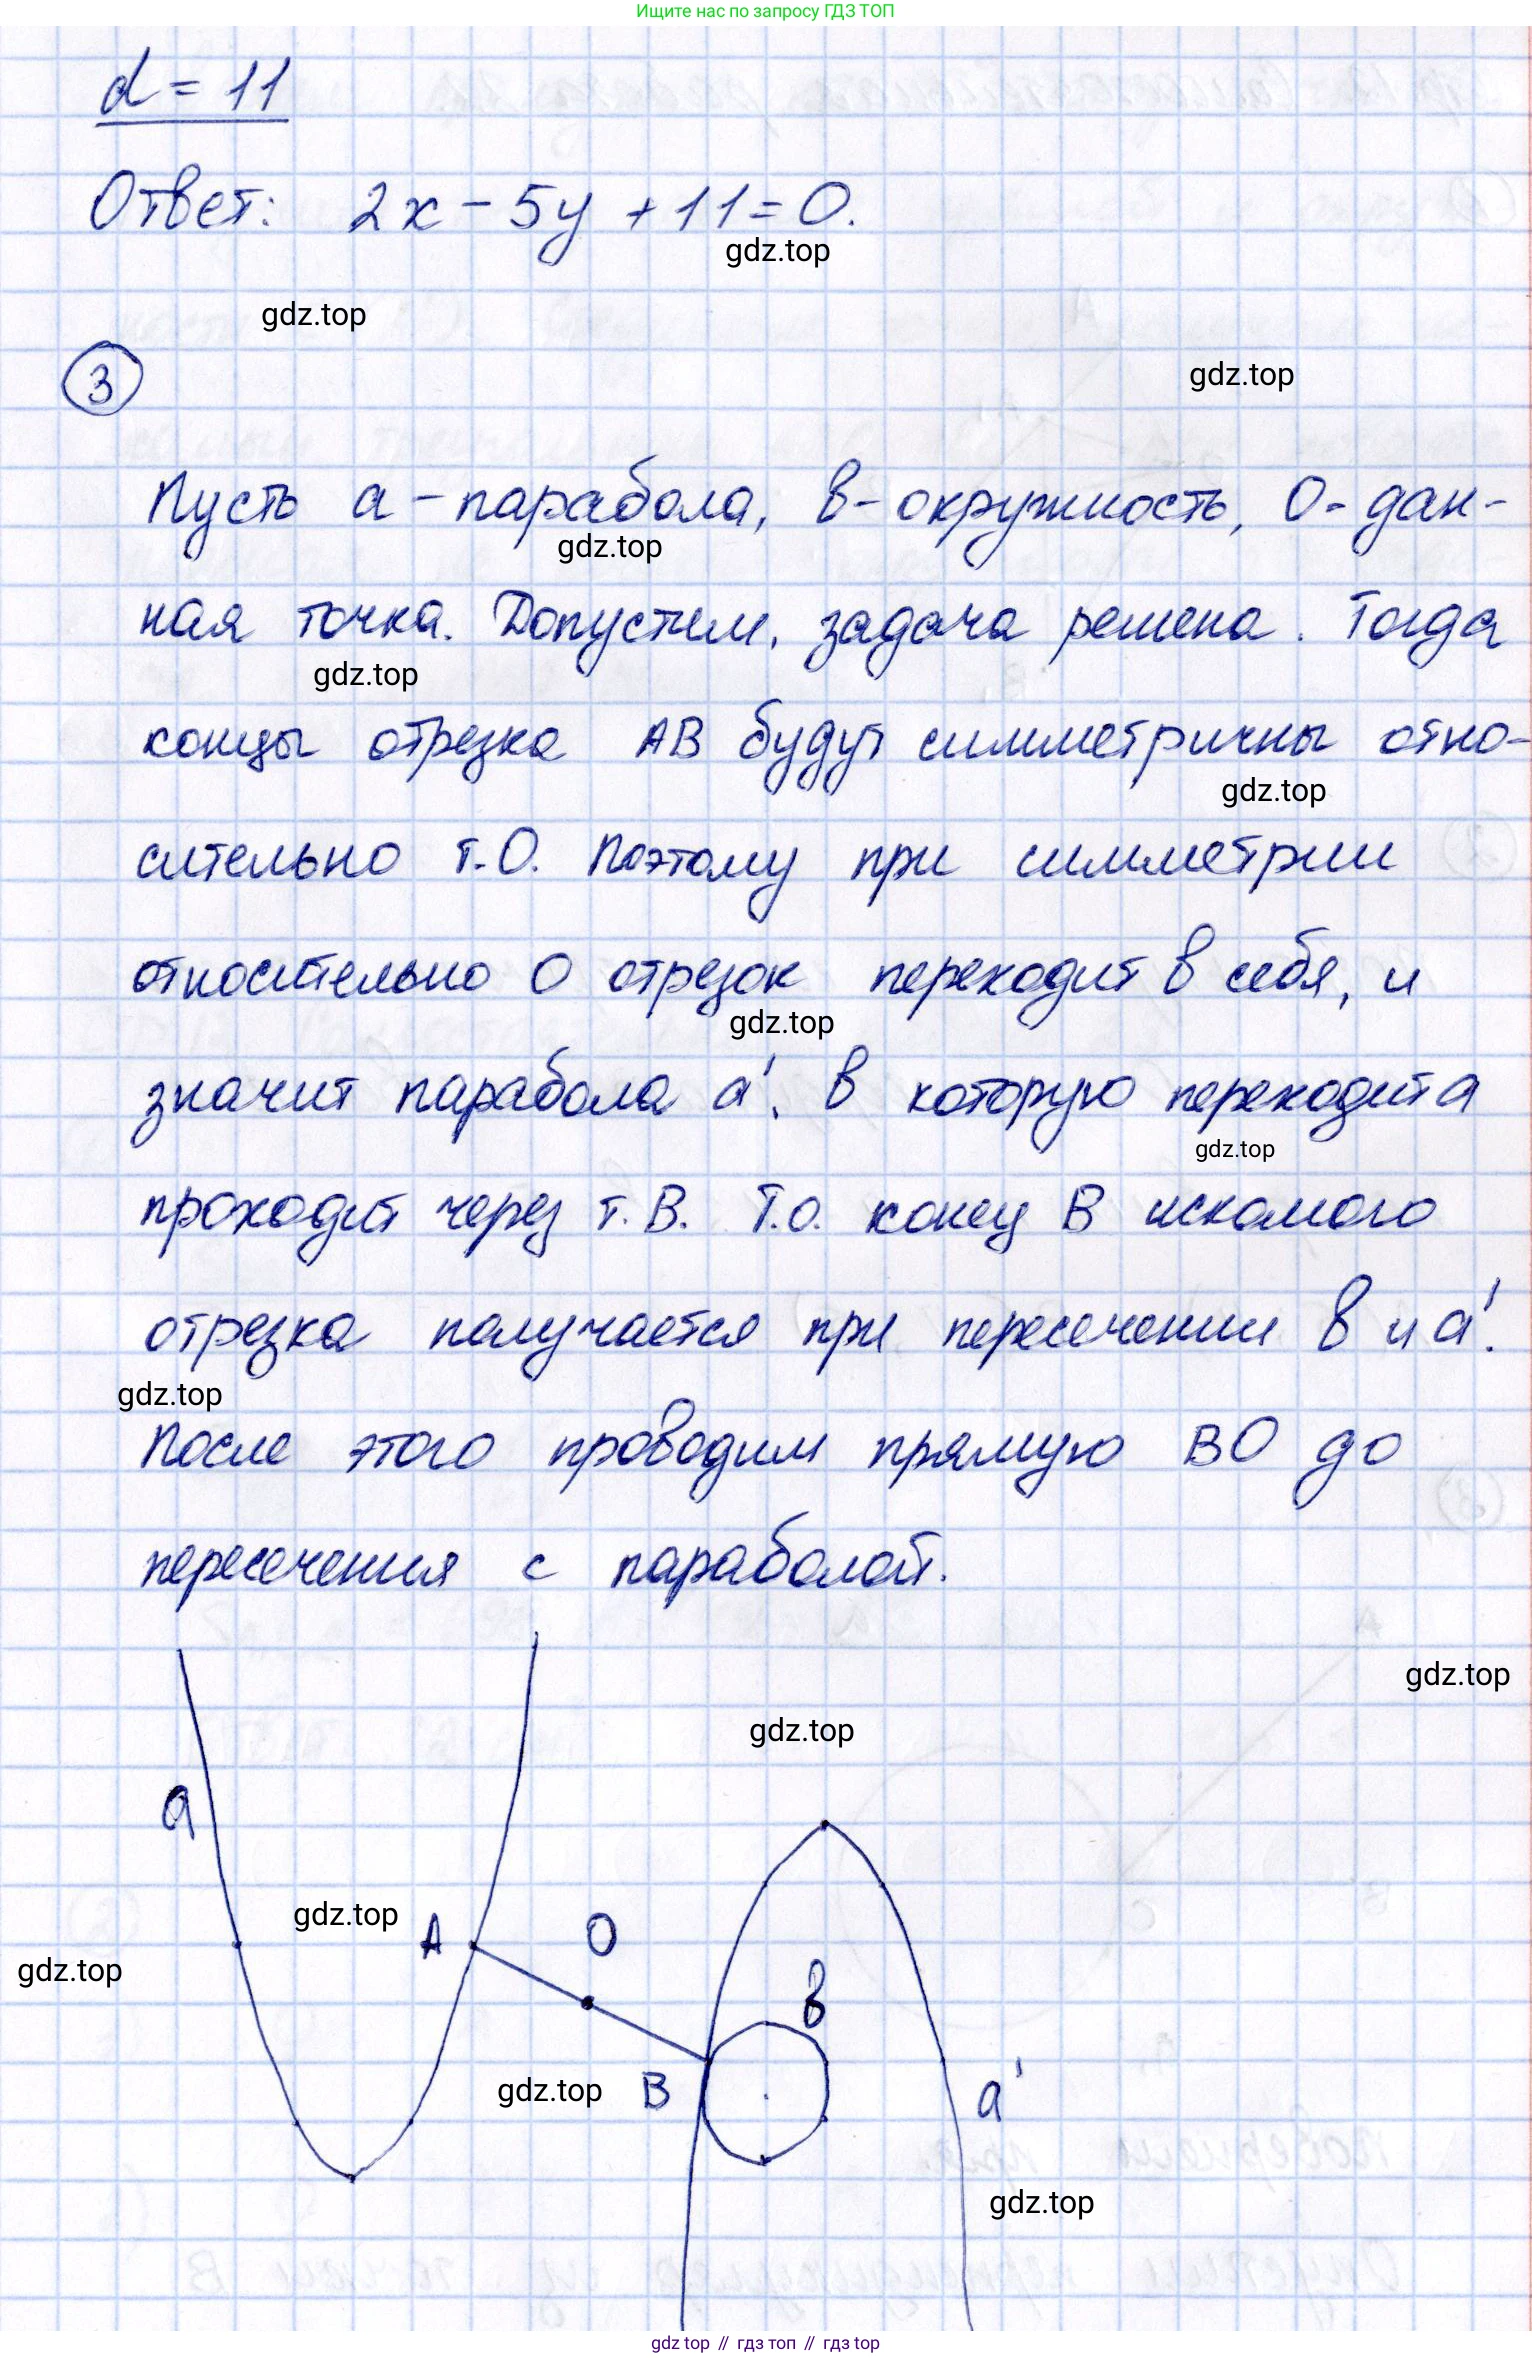 Ищите нас по запросу ГДЗ ТОП
d = 11
Ответ: 2x - 5y + 11 = 0.
gdz.top
gdz.top
3
gdz.top
Пусть a - парабола, в - окружность, О - дан-
gdz.top
ная точка. Допустим, задача решена. Тогда
gdz.top
концы отрезка АВ будут симметричны отно-
gdz.top
сительно т.О. Поэтому при симметрии
относительно О отрезок переходит в себя, и
gdz.top
значит парабола a', в которую переходит a
gdz.top
проходит через т. В. Т.о. конец В искомого
отрезка получается при пересечении в и a'.
gdz.top
После этого проводим прямую ВО до
пересечения с параболой.
gdz.top
gdz.top
a
gdz.top
A
O
gdz.top
в
gdz.top
B
a'
gdz.top
gdz.top // гдз топ // гдз top